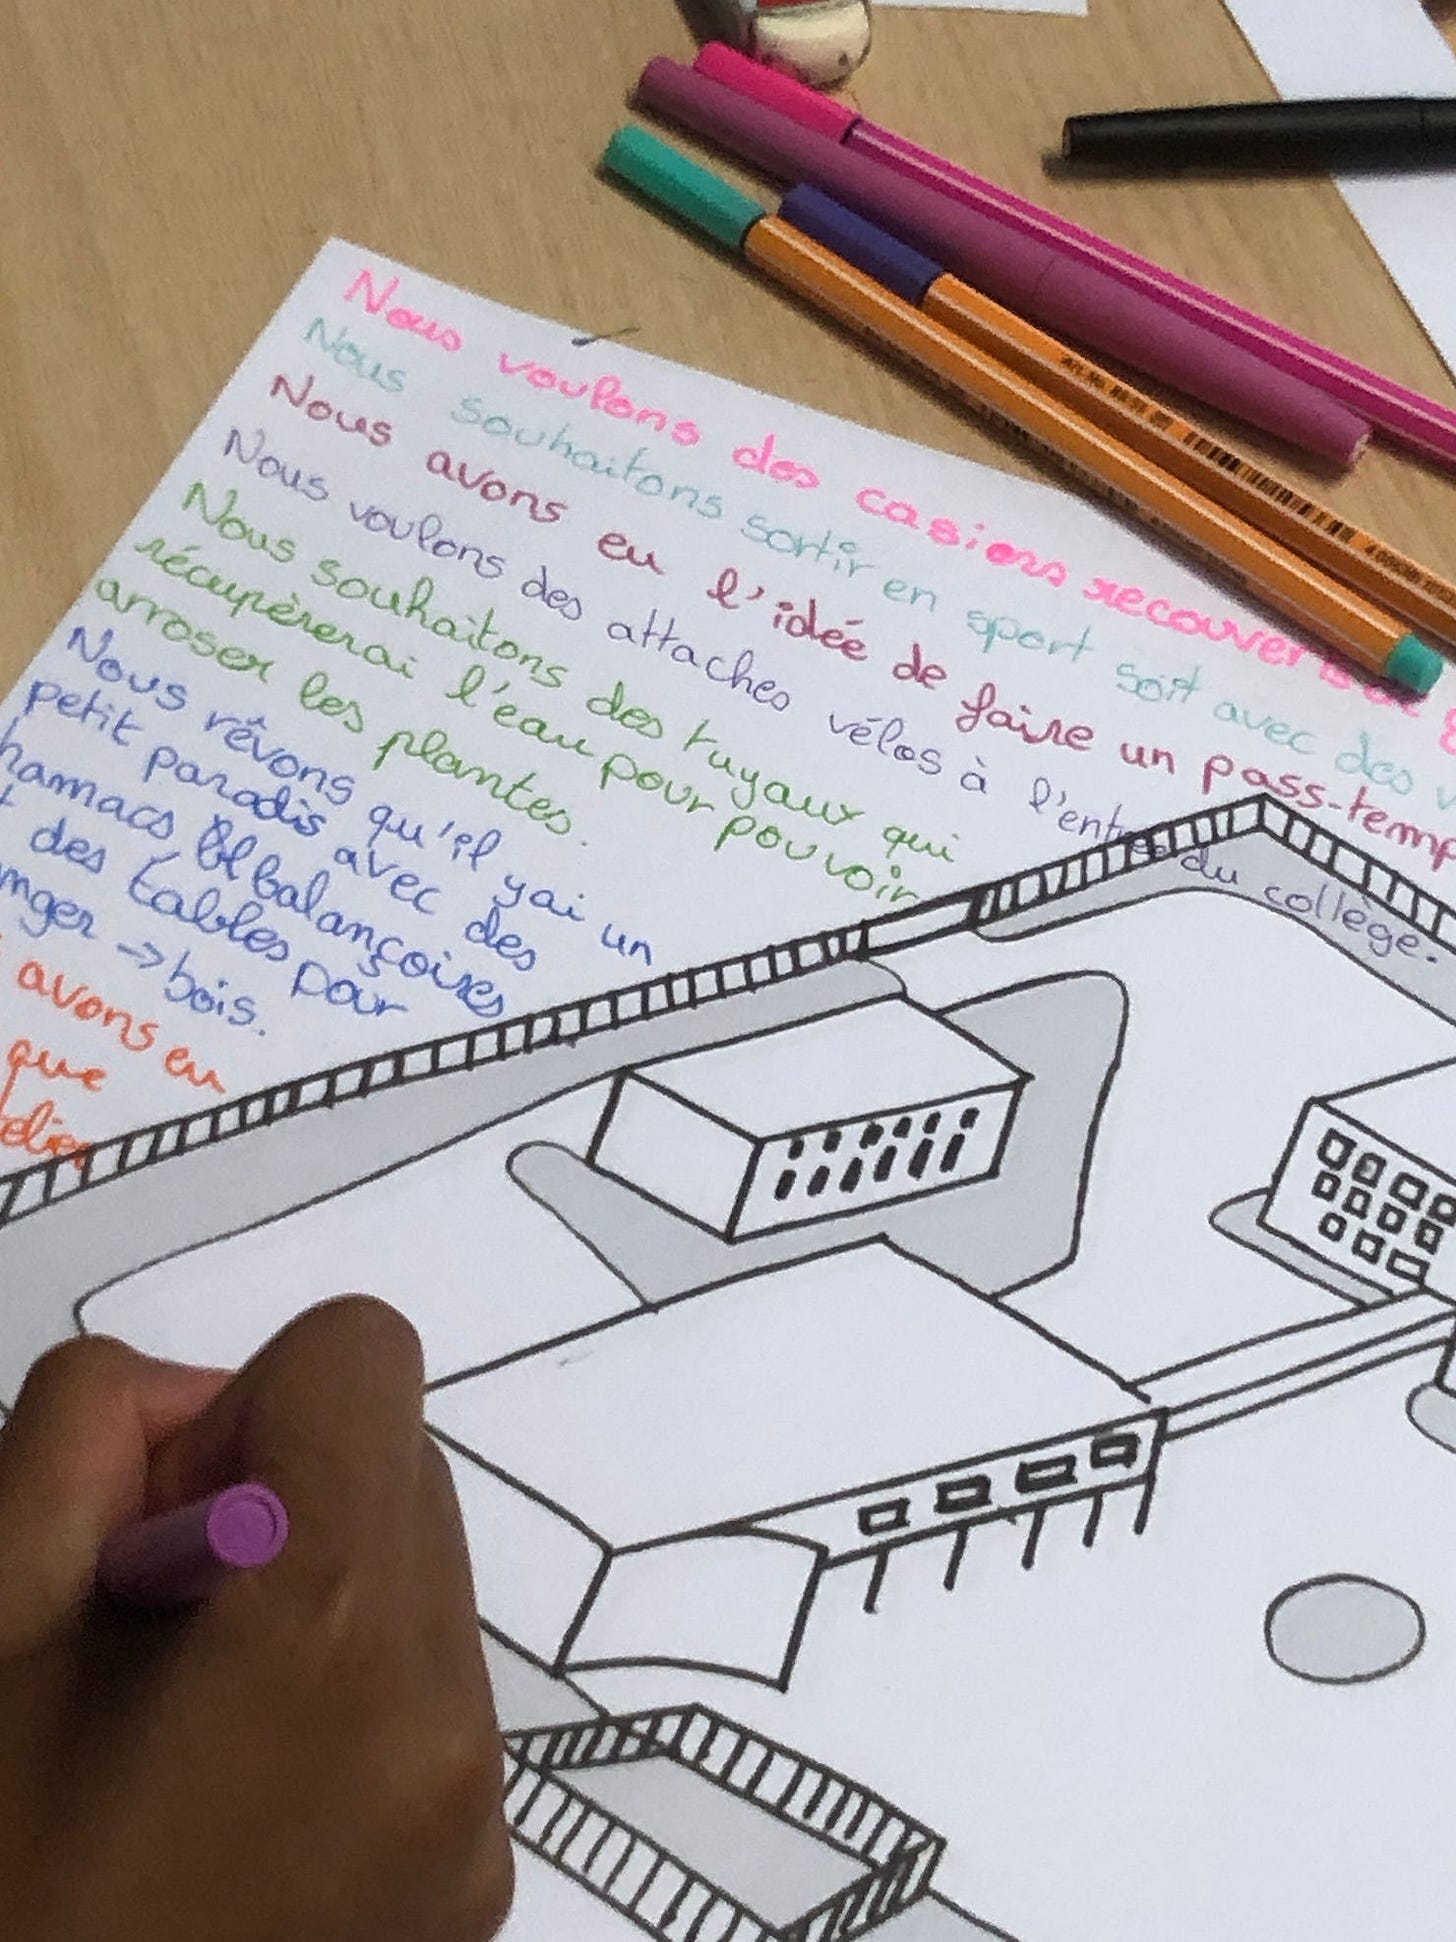 Nous voulons des casiers recouverts de
Nous souhaitons sortir en sport soit avec des
Nous avons eu l'idée de faire un pass-temp
Nous voulons des attaches vélos à l'entrée du collège.
Nous souhaitons des tuyaux qui
récupèrerai l'eau pour pouvoir
arroser les plantes.
Nous rêvons qu'il yai un
petit paradis avec des
hammacs et balançoires
t des tables pour
anger -> bois.
avons eu
que
elier